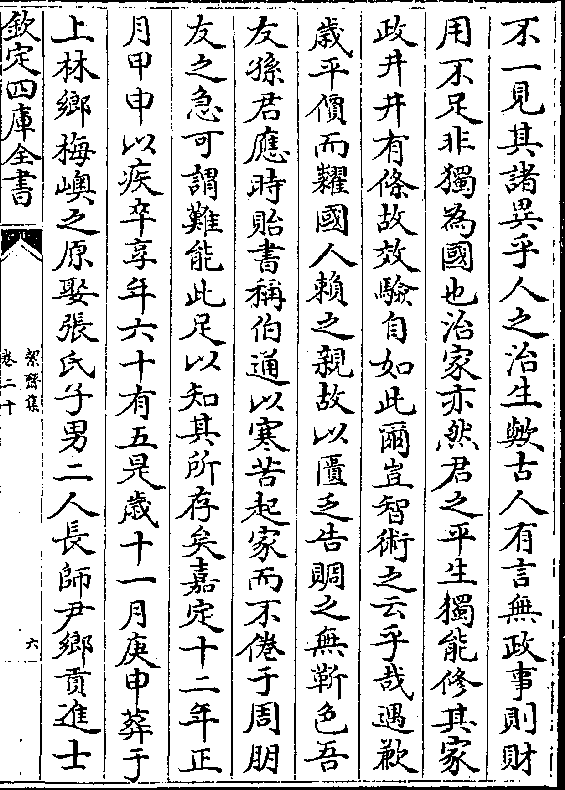 不一見其諸異乎人之治生歟古人有言無政事則財
用不足非獨為國也治家亦然君之平生獨能修其家
政井井有條故效驗自如此爾豈智術之云乎哉遇歉
歲平價而糶國人賴之親故以匱乏告賙之無靳色吾
友孫君應時貽書稱伯通以寒苦起家而不倦于周朋
友之急可謂難能此足以知其所存矣嘉定十二年正
月甲申以疾卒享年六十有五是歲十一月庚申葬于
上林鄉梅嶼之原娶張氏子男二人長師尹鄉貢進士
欽定四庫全書
絜齋集
卷二十
六